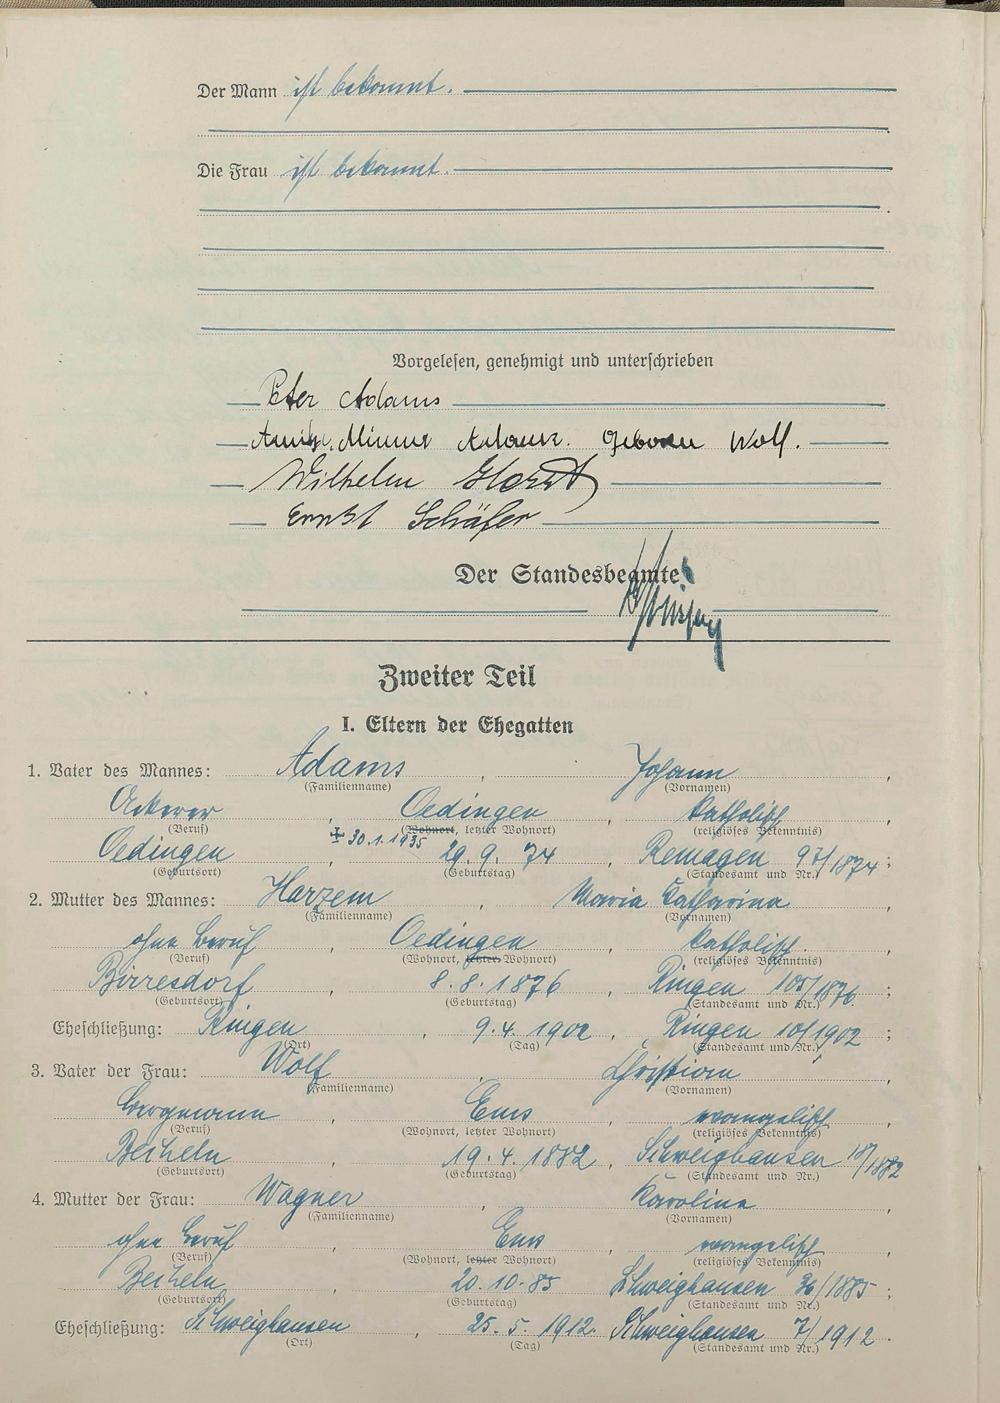 Der Mann ist bekannt.
Die Frau ist bekannt.
Vorgelesen, genehmigt und unterschrieben
Peter Adams
Minna Adams. geboren Wolf.
Wilhelm Horst
Ernst Schäfer
Der Standesbeamte
Zweiter Teil
I. Eltern der Ehegatten
1. Vater des Mannes: Adams, Johann,
(Familienname) (Vornamen)
Ackerer, Oedingen, katholisch,
(Beruf) (Wohnort, letzter Wohnort) (religiöses Bekenntnis)
Oedingen, ‡ 30.1.1935 29.9.74, Remagen 97/1874;
(Geburtsort) (Geburtstag) (Standesamt und Nr.)
2. Mutter des Mannes: Harzem, Maria Katharina,
(Familienname) (Vornamen)
ohne Beruf, Oedingen, katholisch,
(Beruf) (Wohnort, letzter Wohnort) (religiöses Bekenntnis)
Birresdorf, 8.8.1876, Ringen 105/1876;
(Geburtsort) (Geburtstag) (Standesamt und Nr.)
Eheschließung: Ringen, 9.4.1902, Ringen 10/1902;
(Ort) (Tag) (Standesamt und Nr.)
3. Vater der Frau: Wolf, Christian,
(Familienname) (Vornamen)
Bergmann, Ems, evangelisch,
(Beruf) (Wohnort, letzter Wohnort) (religiöses Bekenntnis)
Becheln, 19.4.1882, Schweighausen /1882
(Geburtsort) (Geburtstag) (Standesamt und Nr.)
4. Mutter der Frau: Wagner, Karoline,
(Familienname) (Vornamen)
ohne Beruf, Ems, evangelisch,
(Beruf) (Wohnort, letzter Wohnort) (religiöses Bekenntnis)
Becheln, 20.10.85, Schweighausen 36/1885;
(Geburtsort) (Geburtstag) (Standesamt und Nr.)
Eheschließung: Schweighausen, 25.5.1912. Schweighausen 7/1912.
(Ort) (Tag) (Standesamt und Nr.)